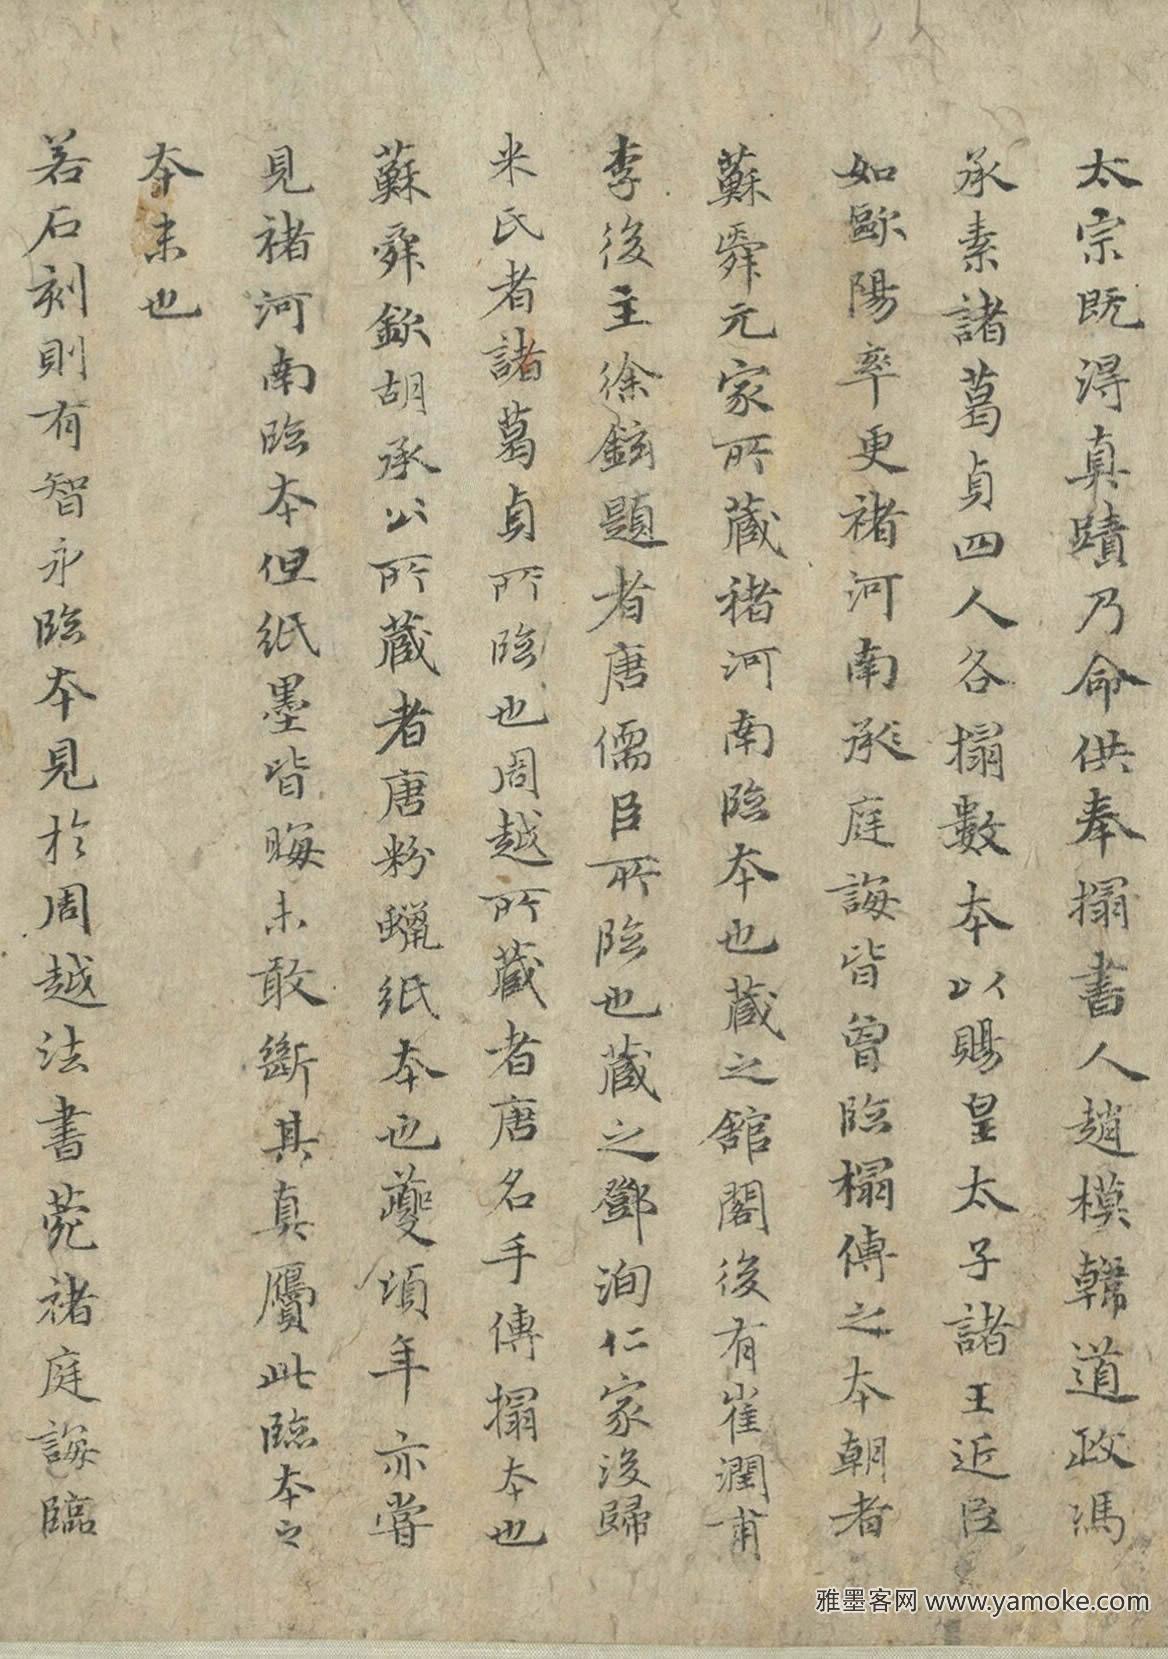 太宗既得真蹟乃命供奉搨書人趙模韓道政馮
承素諸葛貞四人各搨數本以賜皇太子諸王近臣
如歐陽率更褚河南承庭誨皆曾臨榻傳之本朝者
蘇舜元家所藏褚河南臨本也藏之舘閣後有崔潤甫
李後主徐鉉題者唐儒臣所臨也藏之鄧洵仁家後歸
米氏者諸葛貞所臨也周越所藏者唐名手傳搨本也
蘇舜欽胡承公所藏者唐粉蠟紙本也夔頃年亦嘗
見褚河南臨本但紙墨皆晦未敢斷其真贗此臨本之
本末也
若石刻則有智永臨本見於周越法書菀褚庭誨臨
雅墨客网 www.yamoke.com